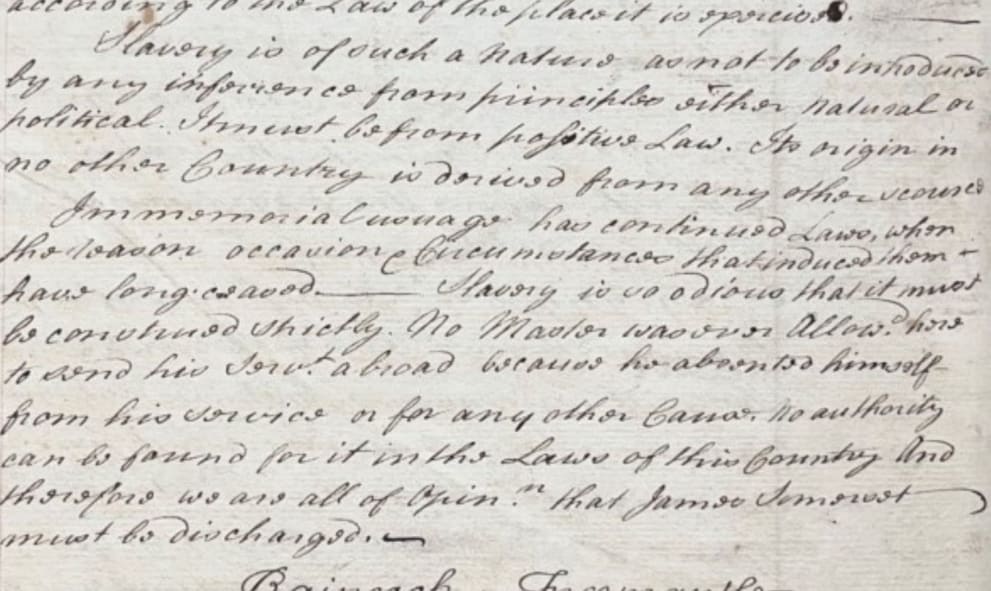 according to the Law of the place it is exercised.
Slavery is of such a Nature as not to be introduced
by any inference from principles either Natural or
political. It must be from positive Law. Its origin in
no other Country is derived from any other scource
Immemorial usuage has continued Laws, when
the reason occasion & Circumstances that induced them
have long ceased. Slavery is so odious that it must
be construed strictly. No Master was ever Allow.d here
to send his Serv.t abroad because he absented himself
from his service or for any other Cause. No authority
can be found for it in the Laws of this Country And
therefore we are all of Opin.n that James Somerset
must be discharged.